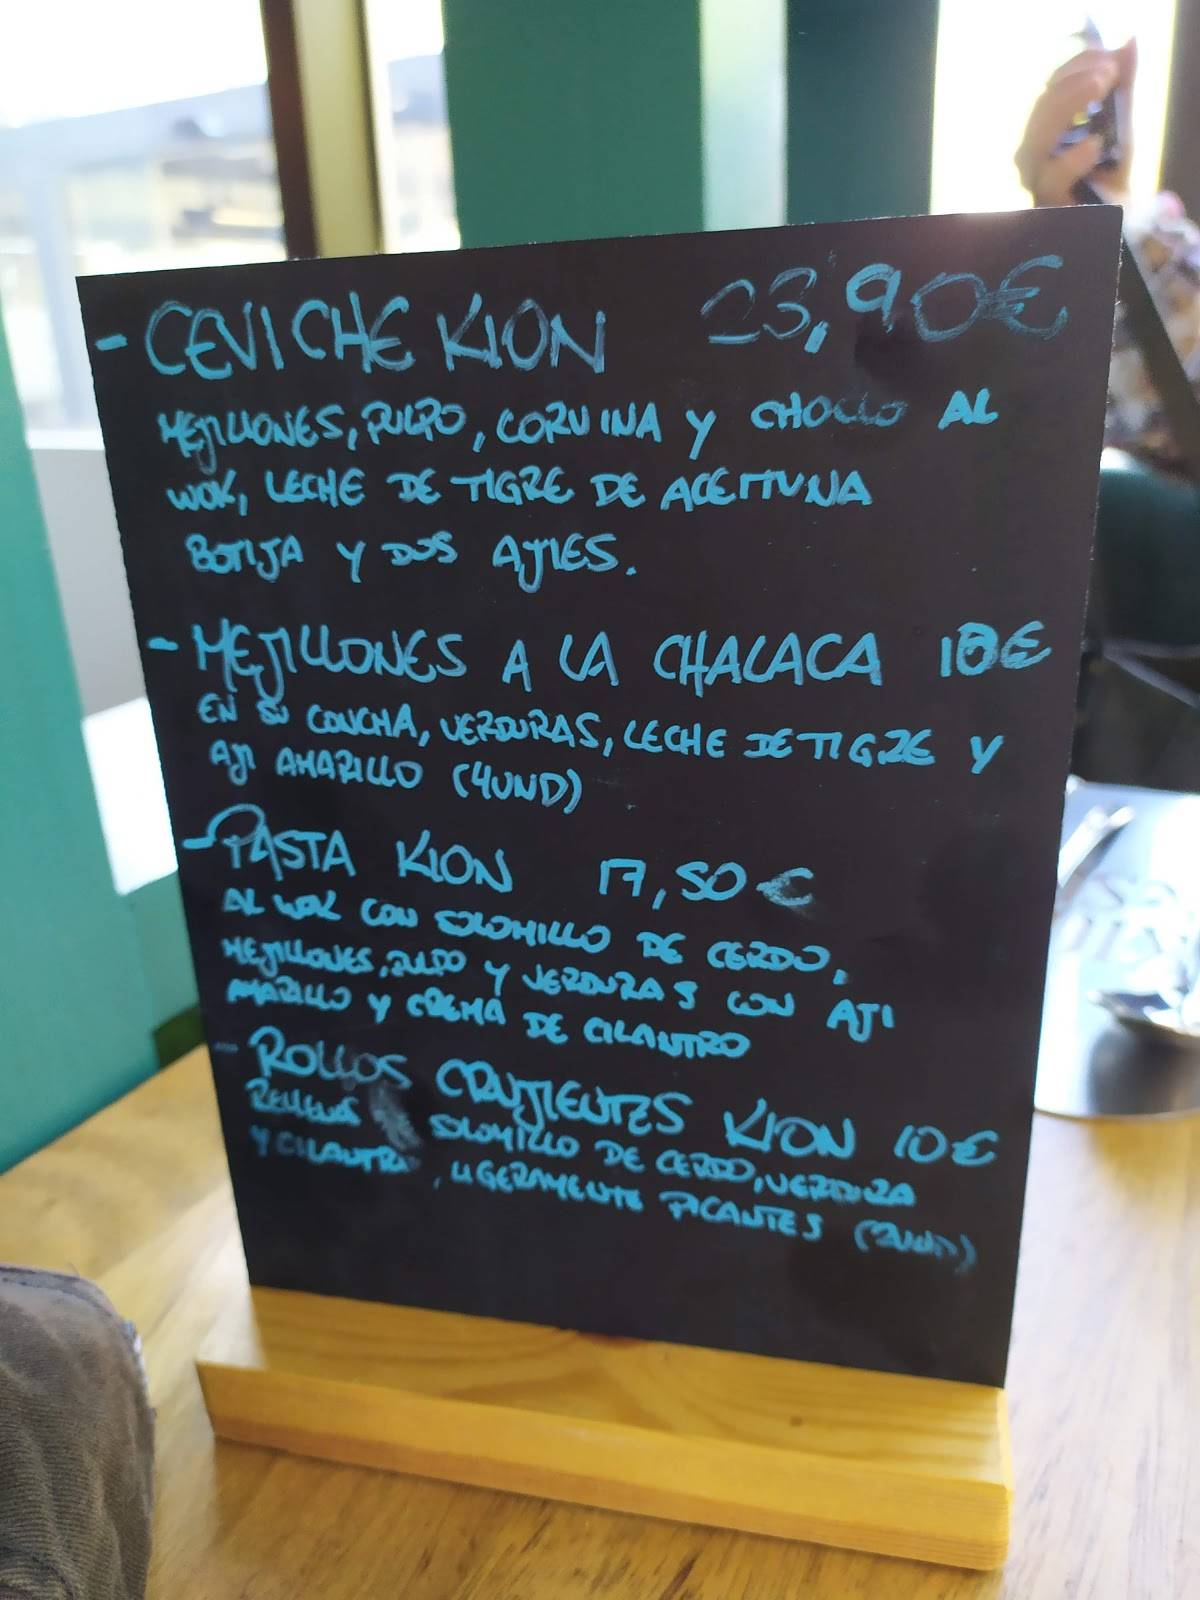 - CEVICHE KION 23,90€
MEJILLONES, PULPO, CORVINA Y CHOCLO AL
WOK, LECHE DE TIGRE DE ACEITUNA
BOTIJA Y DOS AJIES.
- MEJILLONES A LA CHALACA 10€
EN SU CONCHA, VERDURAS, LECHE DE TIGRE Y
AJI AMARILLO (4UND)
- PASTA KION 17,50€
AL WOK CON SOLOMILLO DE CERDO,
MEJILLONES, PULPO Y VERDURAS CON AJI
AMARILLO Y CREMA DE CILANTRO
- ROLLOS CRUJIENTES KION 10€
RELLENOS SOLOMILLO DE CERDO, VERDURA
Y CILANTRO, LIGERAMENTE PICANTES (2UND)